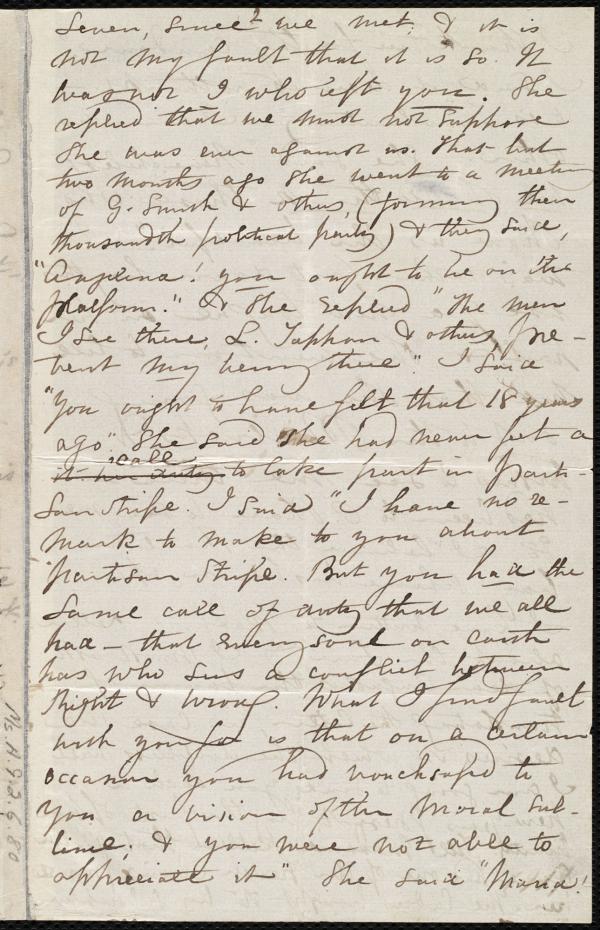 seven, since we met, & it is
not my fault that it is so. It
was not I who left you. She
replied that we must not suppose
she was ever against us. That but
two months ago she went to a meeting
of G. Smith & others, (forming their
thousandth political party) & they said,
"Angelina! you ought to be on the
platform." & she replied "The men
I see there, L. Tappan & others, pre-
vent my being there." I said
"You ought to have felt that 18 years
ago" She said she had never felt a
call
it her duty to take part in Parti-
san strife. I said "I have no re-
mark to make to you about
partisan strife. But you had the
same call of duty that we all
had – that every soul on earth
has who sees a conflict between
Right & Wrong. What I find fault
with you for is that on a certain
occasion you had vouchsafed to
you a vision of the moral sub-
lime, & you were not able to
appreciate it" She said "Maria!
Ms. A. 9. 2. 6. 80